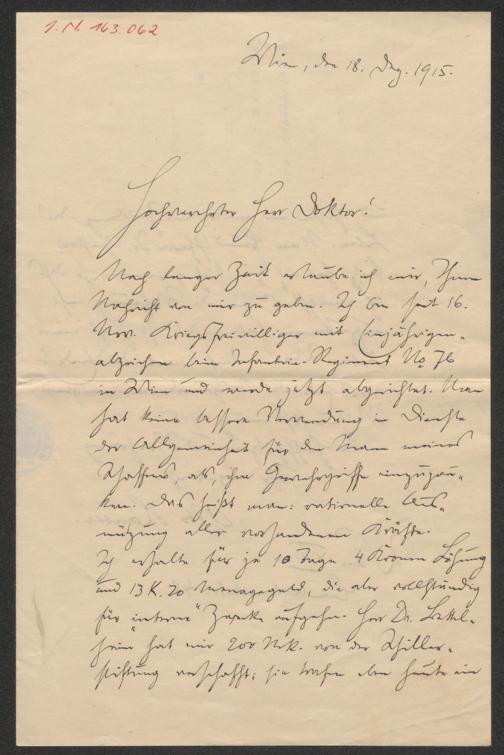 I.N. 163.062
Wien, den 18. Dez. 1915.
Hochverehrter Herr Doktor!
Nach langer Zeit erlaube ich mir, Ihnen
Nachricht von mir zu geben. Ich bin seit 16.
Nov. Kriegsfreiwilliger mit Einjährigen-
abzeichen beim Infanterie-Regiment No 76
in Wien und werde jetzt abgerichtet. Man
hat keine bessere Verwendung im Dienste
der Allgemeinheit für den Mann meines
Schaffens als, ihm Gewehrgriffe einzupau-
ken. Das heißt man: rationelle Aus-
nützung aller vorhandenen Kräfte.
Ich erhalte für je 10 Tage 4 Kronen Löhnung
und 13 K. 20 Menagegeld, die aber vollständig
für „interne" Zwecke aufgehn. Herr Dr. Bettel-
heim hat mir 200 Mk. von der Schiller-
stiftung verschafft; sie trafen eben heute ein